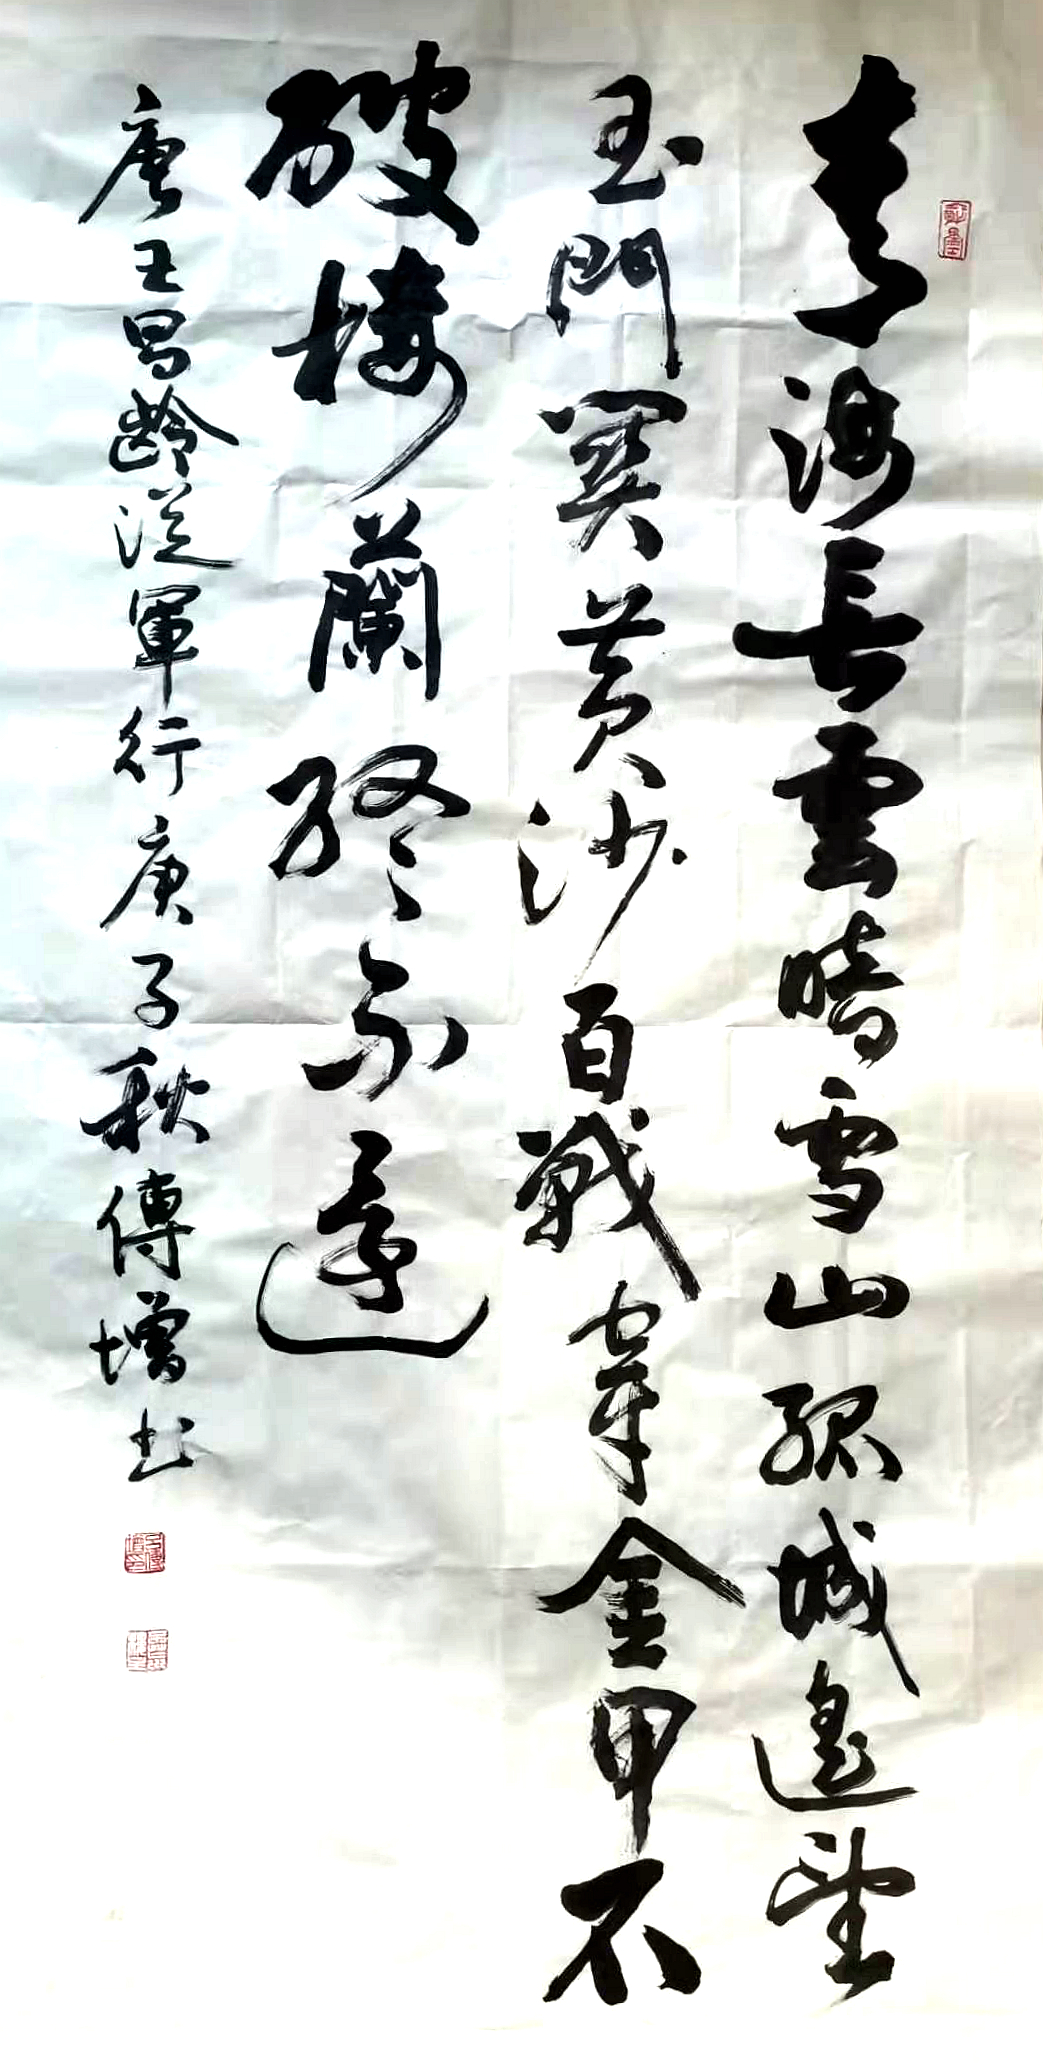 青海長雲暗雪山孤城遙望
玉門關黃沙百戰穿金甲不
破樓蘭終不還
唐王昌齡從軍行庚子秋傳增书